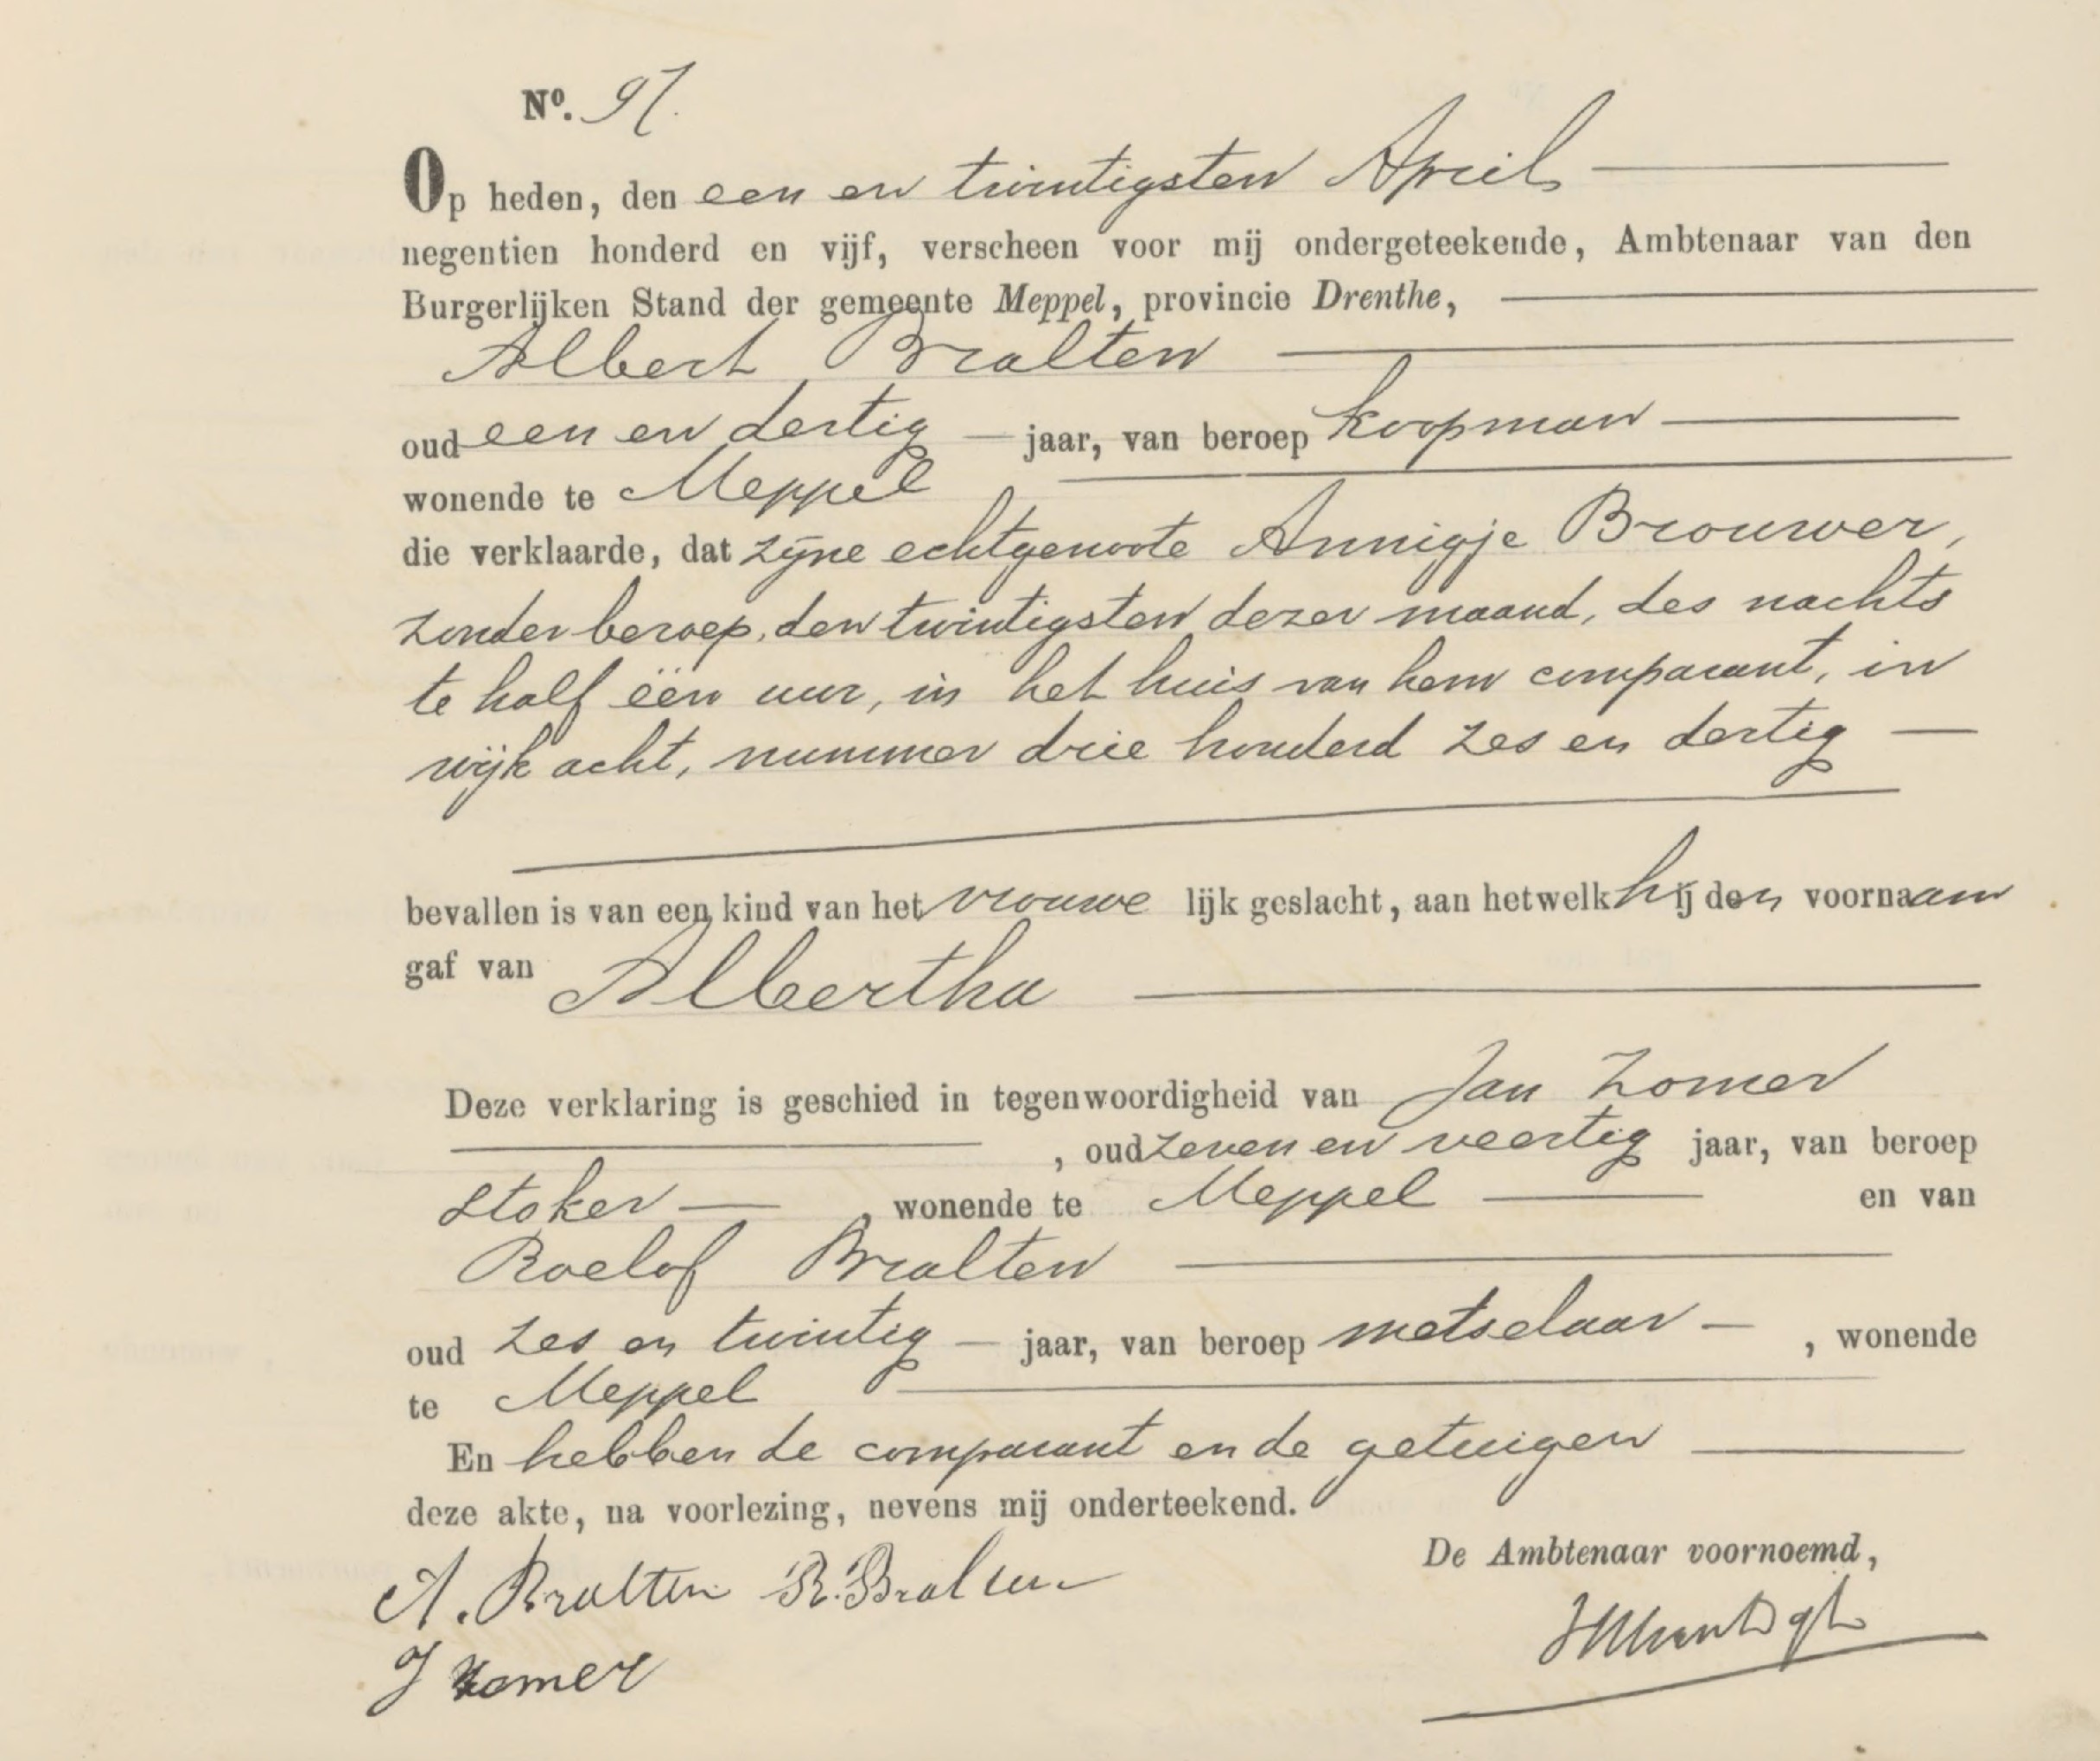 Nº. 97.
Op heden, den een en twintigsten April
negentien honderd en vijf, verscheen voor mij ondergeteekende, Ambtenaar van den
Burgerlijken Stand der gemeente Meppel, provincie Drenthe,
Albert Bralten
oud een en dertig jaar, van beroep koopman
wonende te Meppel
die verklaarde, dat zijne echtgenoote Annigje Brouwer,
zonder beroep, den twintigsten dezer maand, des nachts
te half één uur, in het huis van hem comparant, in
wijk acht, nummer drie honderd zes en dertig
bevallen is van een kind van het vrouwe lijk geslacht, aan hetwelk hij den voornaam
gaf van Albertha
Deze verklaring is geschied in tegenwoordigheid van Jan Zomer
, oud zeven en veertig jaar, van beroep
stoker , wonende te Meppel en van
Roelof Bralten
oud zes en twintig jaar, van beroep metselaar , wonende
te Meppel
En hebben de comparant en de getuigen
deze akte, na voorlezing, nevens mij onderteekend.
De Ambtenaar voornoemd,
A. Bralten R. Bralten
J Zomer